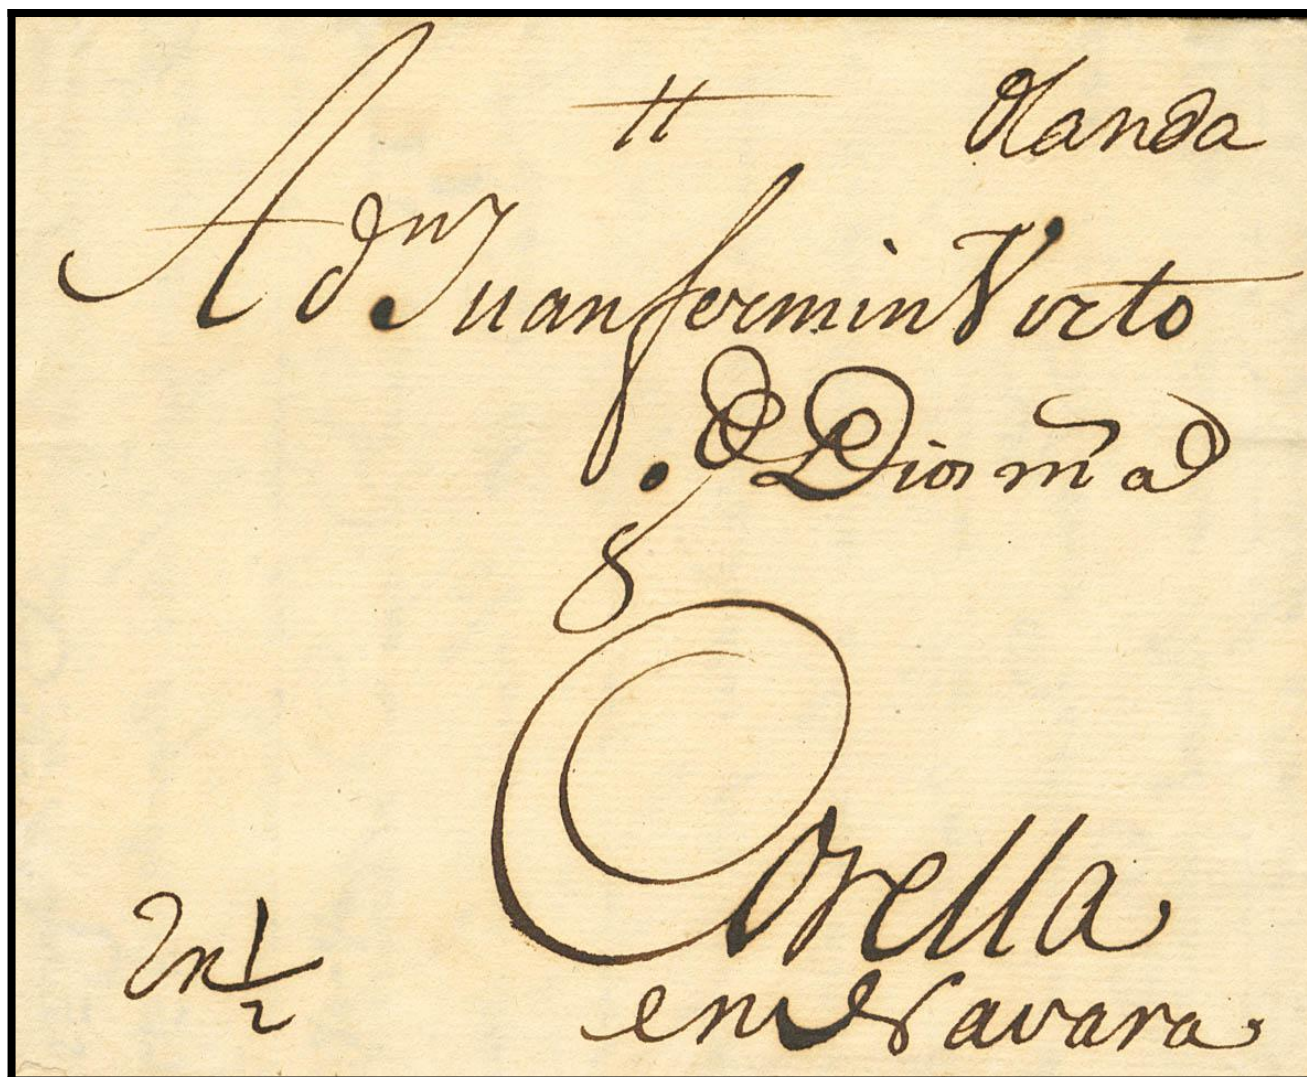 Olanda
A dn Juan fermin Virto
G Dios m ad
Corella
en Navara
2 R 1/2